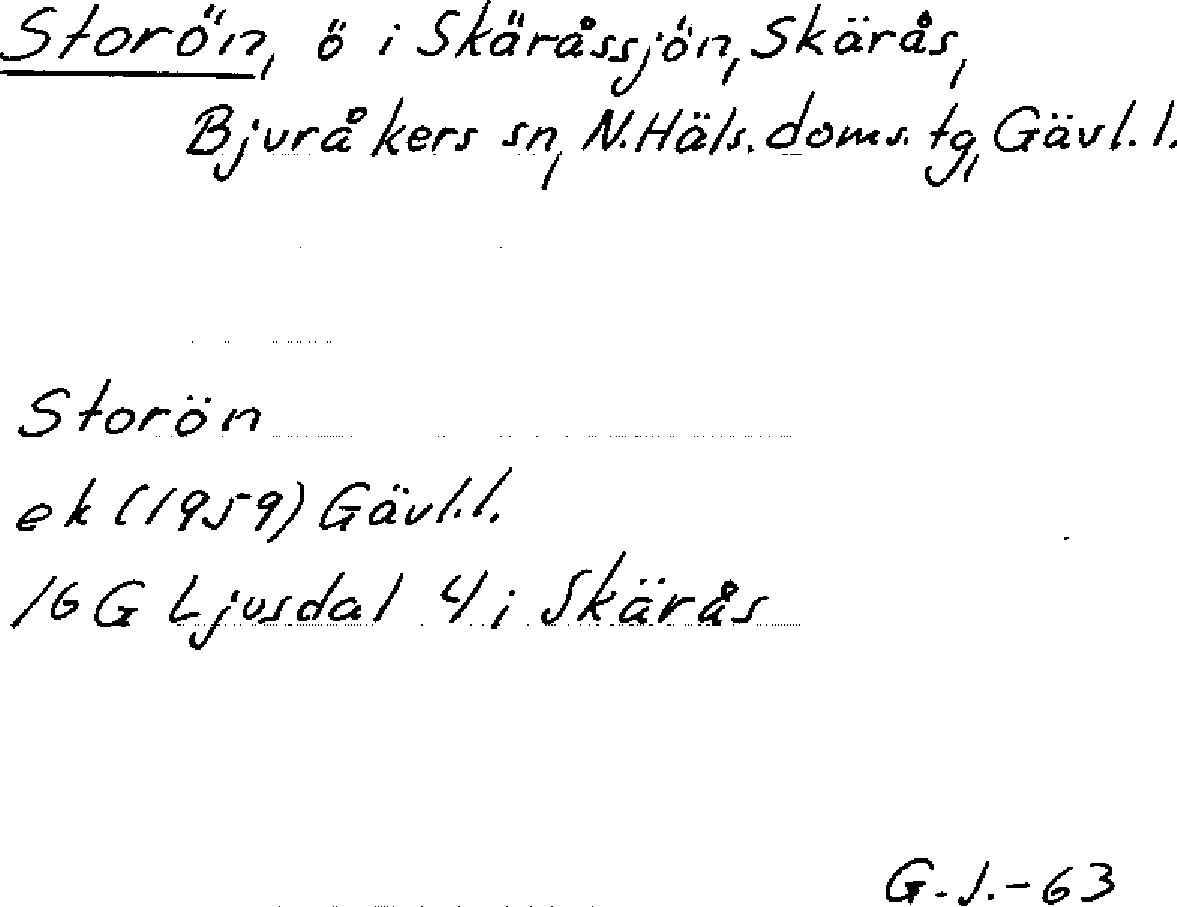 Storön, ö i Skäråssjön, Skärås,
Bjuråkers sn, N.Häls.doms.tg, Gävl.l.
Storön
ek (1959) Gävl.l.
16G Ljusdal 4i Skärås
G.J.-63